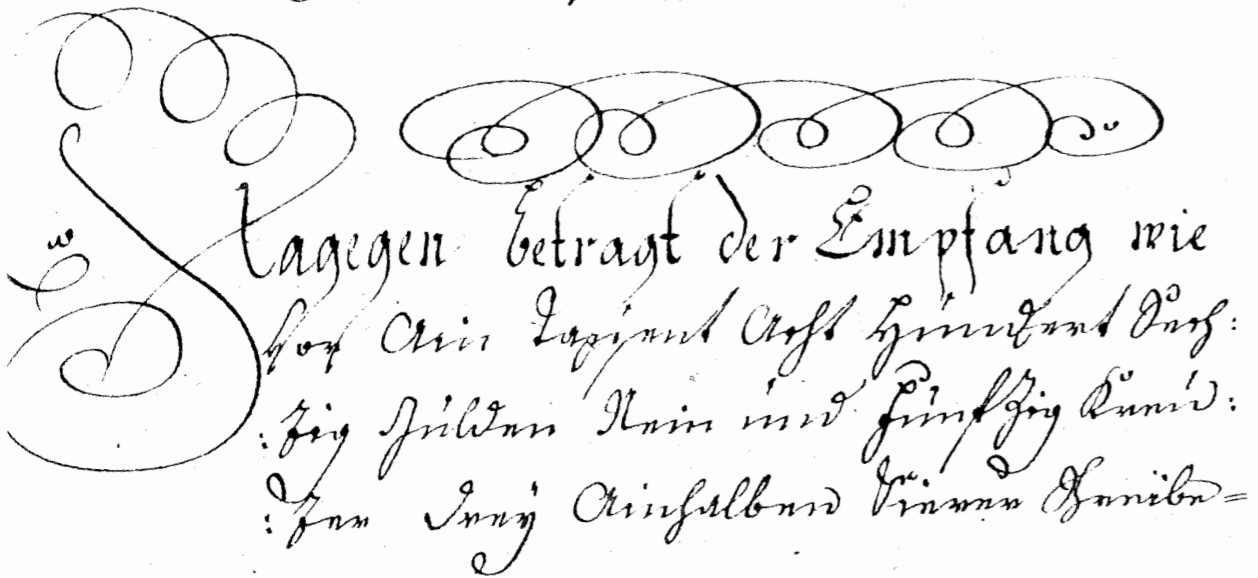 Dagegen betragt der Empfang wie
Vor Ain Taußent Acht Hundert Sech:
:zig Gulden Nein und Fünfzig Kreu:
:zer Drey Ainhalben dieren Schreibe=